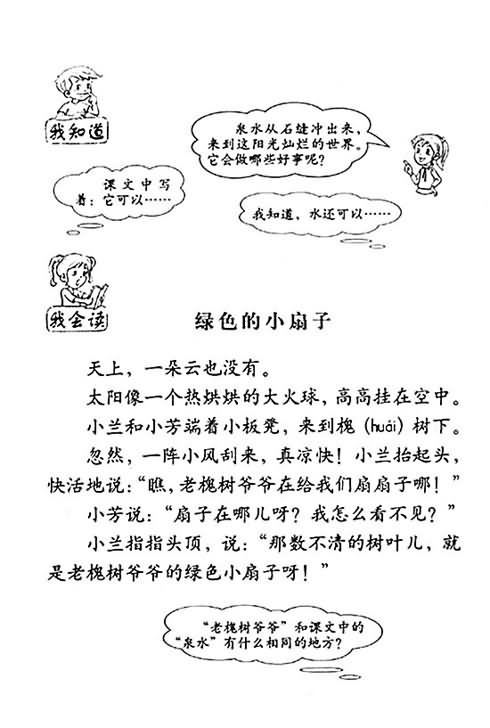 我知道
泉水从石缝冲出来，
来到这阳光灿烂的世界。
它会做哪些好事呢？
课文中写
着：它可以……
我知道，水还可以……
我会读
绿色的小扇子
天上，一朵云也没有。
太阳像一个热烘烘的大火球，高高挂在空中。
小兰和小芳端着小板凳，来到槐（huái）树下。
忽然，一阵小风刮来，真凉快！小兰抬起头，
快活地说：“瞧，老槐树爷爷在给我们扇扇子哪！”
小芳说：“扇子在哪儿呀？我怎么看不见？”
小兰指指头顶，说：“那数不清的树叶儿，就
是老槐树爷爷的绿色小扇子呀！”
“老槐树爷爷”和课文中的
“泉水”有什么相同的地方？